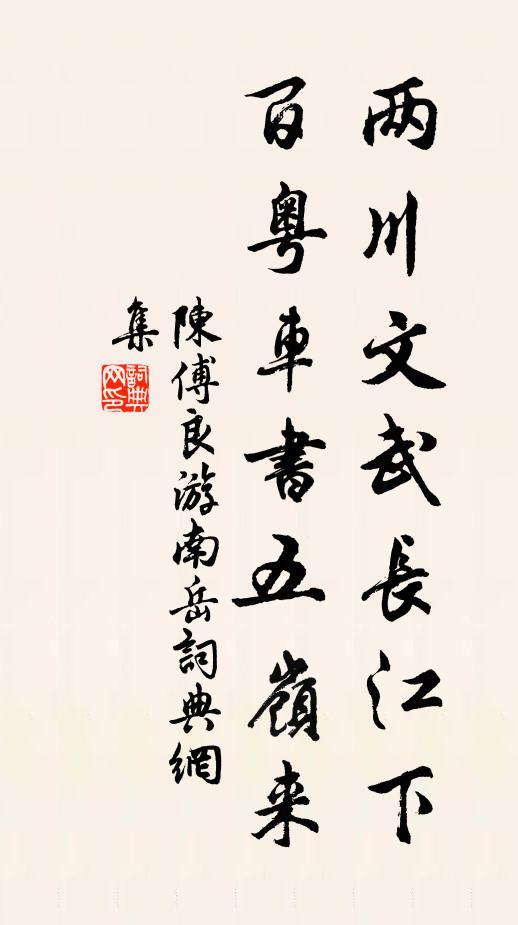 两川文武長江下
百粤車書五嶺来
陳傅良游南岳詞典網
集
詞典
网印